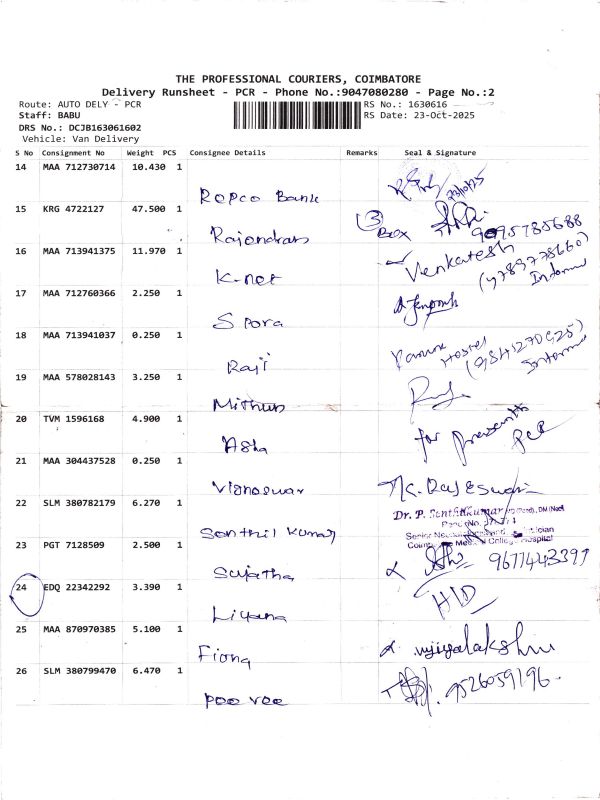 THE PROFESSIONAL COURIERS, COIMBATORE
Delivery Runsheet - PCR - Phone No.:9047080280 - Page No.:2
Route: AUTO DELY - PCR
RS No.: 1630616
Staff: BABU
RS Date: 23-Oct-2025
DRS No.: DCJB163061602
Vehicle: Van Delivery
S No Consignment No Weight PCS Consignee Details Remarks Seal & Signature
14 MAA 712730714 10.430 1
Repco Bank 23/10/25
15 KRG 4722127 47.500 1
Rajendran 3 Box 9095785688
16 MAA 713941375 11.970 1
K-net Venkatesh
17 MAA 712760366 2.250 1
Spora
18 MAA 713941037 0.250 1
Raji Hostel
19 MAA 578028143 3.250 1
Mithun
20 TVM 1596168 4.900 1
Asha for PCR
21 MAA 304437528 0.250 1
Vigneswar K. Rajeswari
22 SLM 380782179 6.270 1
Dr. P. Senthilkumar
Senthil Kumar
Senior
Medical College Hospital
23 PGT 7128509 2.500 1
Sujatha 9677443397
24 EDQ 22342292 3.390 1
Liyana HID
25 MAA 870970385 5.100 1
Fiona vijiyalakshmi
26 SLM 380799470 6.470 1
Poo voo 9526059196